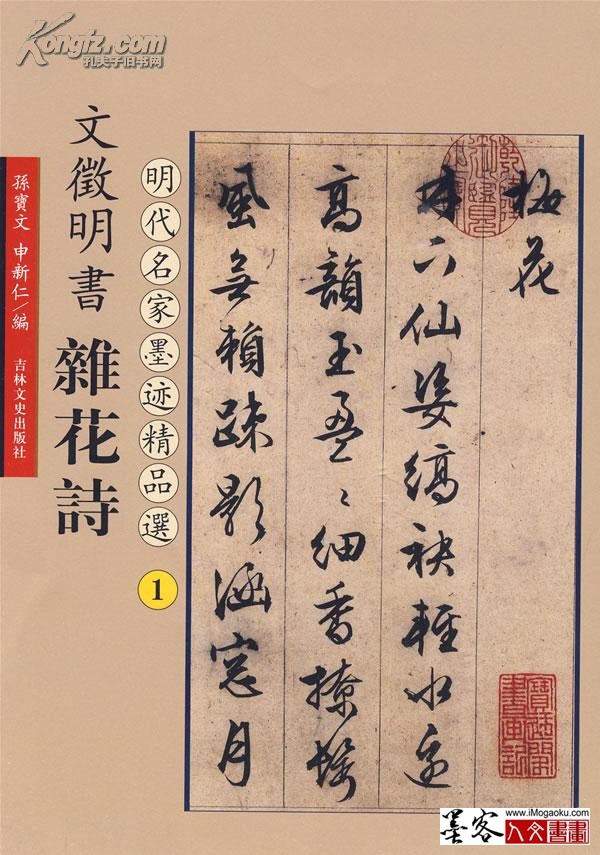 Kongfz.com
孔夫子旧书网
文徵明書
雜花詩
明代名家墨迹精品選
1
孫寶文 申新仁/編
吉林文史出版社
梅花
林下仙姿縞袂輕水邊
高韻玉盈〻細香撩鬢
風無賴疎影涵窓月
乾隆御覽之寶
墨客
www.iMogaoku.com
人文書畫